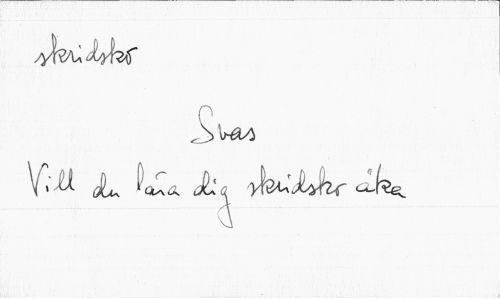 skridsko
Svas
Vill du lära dig skridsko åka